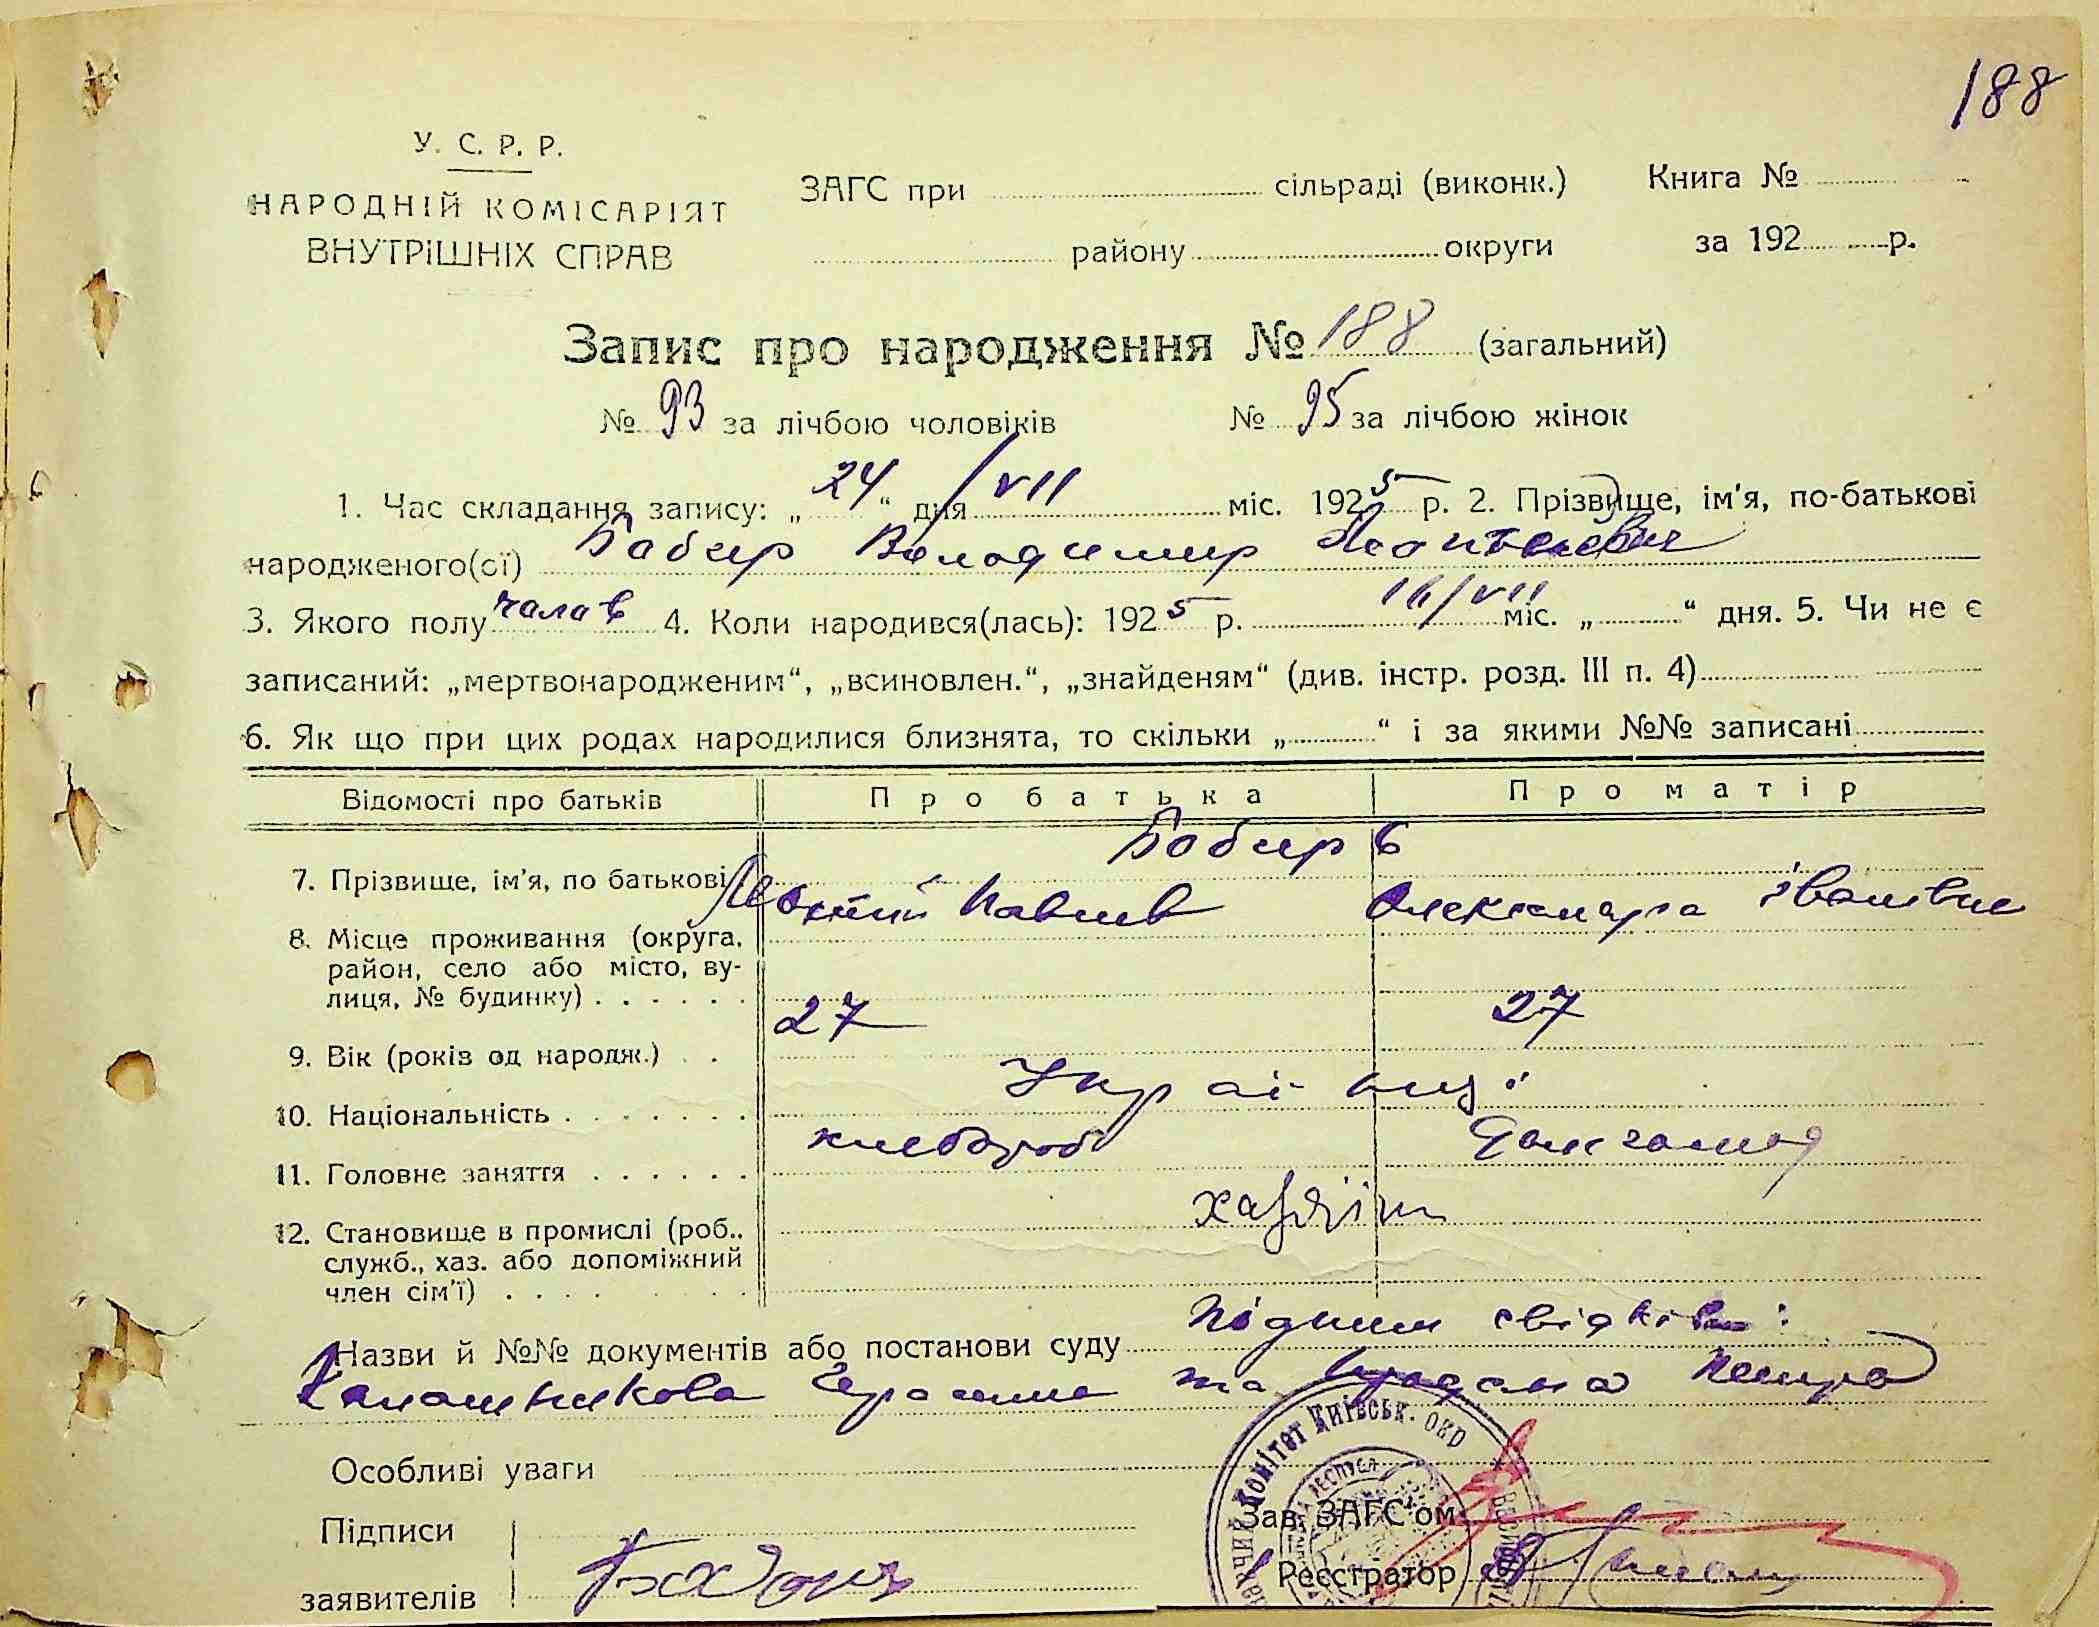 188
У. С. Р. Р.
НАРОДНІЙ КОМІСАРІЯТ
ВНУТРІШНІХ СПРАВ
ЗАГС при сільраді (виконк.) Книга №
району округи за 192 р.
Запис про народження № 188 (загальний)
№ 93 за лічбою чоловіків № 95 за лічбою жінок
1. Час складання запису: „24“ дня /VII міс. 1925 р. 2. Прізвище, ім'я, по-батькові
народженого(ої) Бабир Володимир Леонтьевич
3. Якого полу чолов 4. Коли народився(лась): 1925 р. 16/VII міс. „ “ дня. 5. Чи не є
записаний: „мертвонародженим“, „всиновлен.“, „знайденям“ (див. інстр. розд. III п. 4)
6. Як що при цих родах народилися близнята, то скільки „ “ і за якими №№ записані
Відомості про батьків Про батька Про матір
Бобир
7. Прізвище, ім'я, по батькові Леонтій Павлов Олександра Іванівна
8. Місце проживання (округа,
район, село або місто, ву-
лиця, № будинку)
9. Вік (років од народж.) 27 27
10. Національність Украінці
11. Головне заняття хлебороб Домгоспод
12. Становище в промислі (роб.,
служб., хаз. або допоміжний
член сім'ї)
Назви й №№ документів або постанови суду Підписи свідків:
Калашникова Герасима та Петра
Особливі уваги
Підписи
заявителів
Зав. ЗАГС'ом
Реєстратор
Комітет Київськ. окр